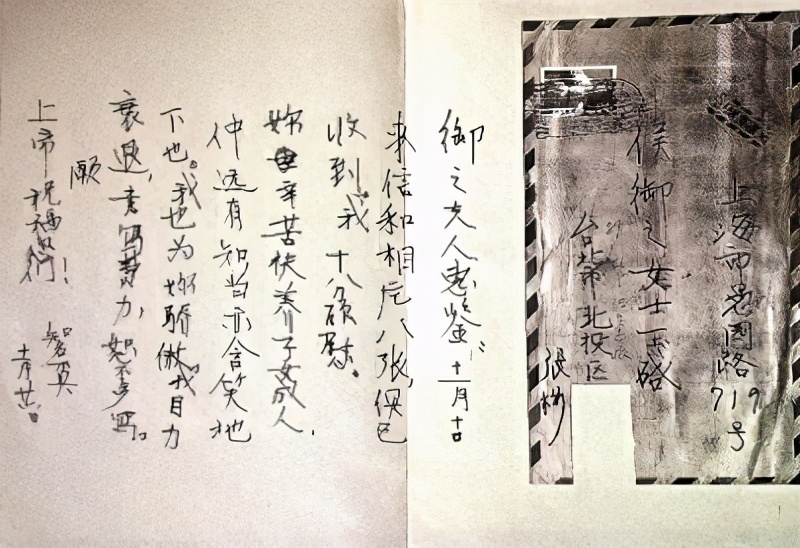 上海市愚园路719号
侯御之女士
台北市北投区
张
御之夫人惠鉴：十一月十日
来信和相片八张，俱已
收到，我十分欣慰。
妳辛苦扶养子女成人，
仲远有知当亦含笑地
下也。我也为妳骄傲。我目力
衰退，书写费力，恕不多写。
愿
上帝祝福妳们！